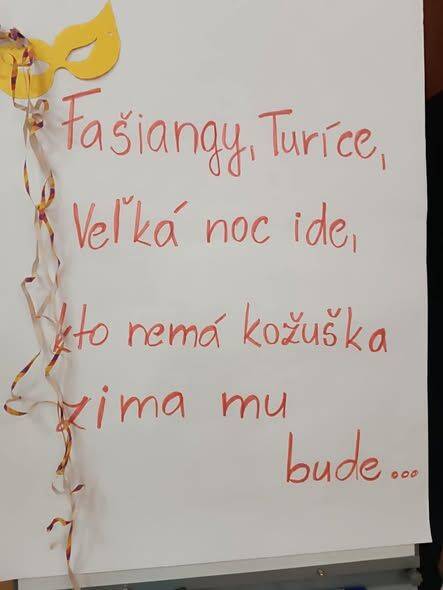 Fašiangy, Turíce,
Veľká noc ide,
kto nemá kožuška
zima mu
bude...